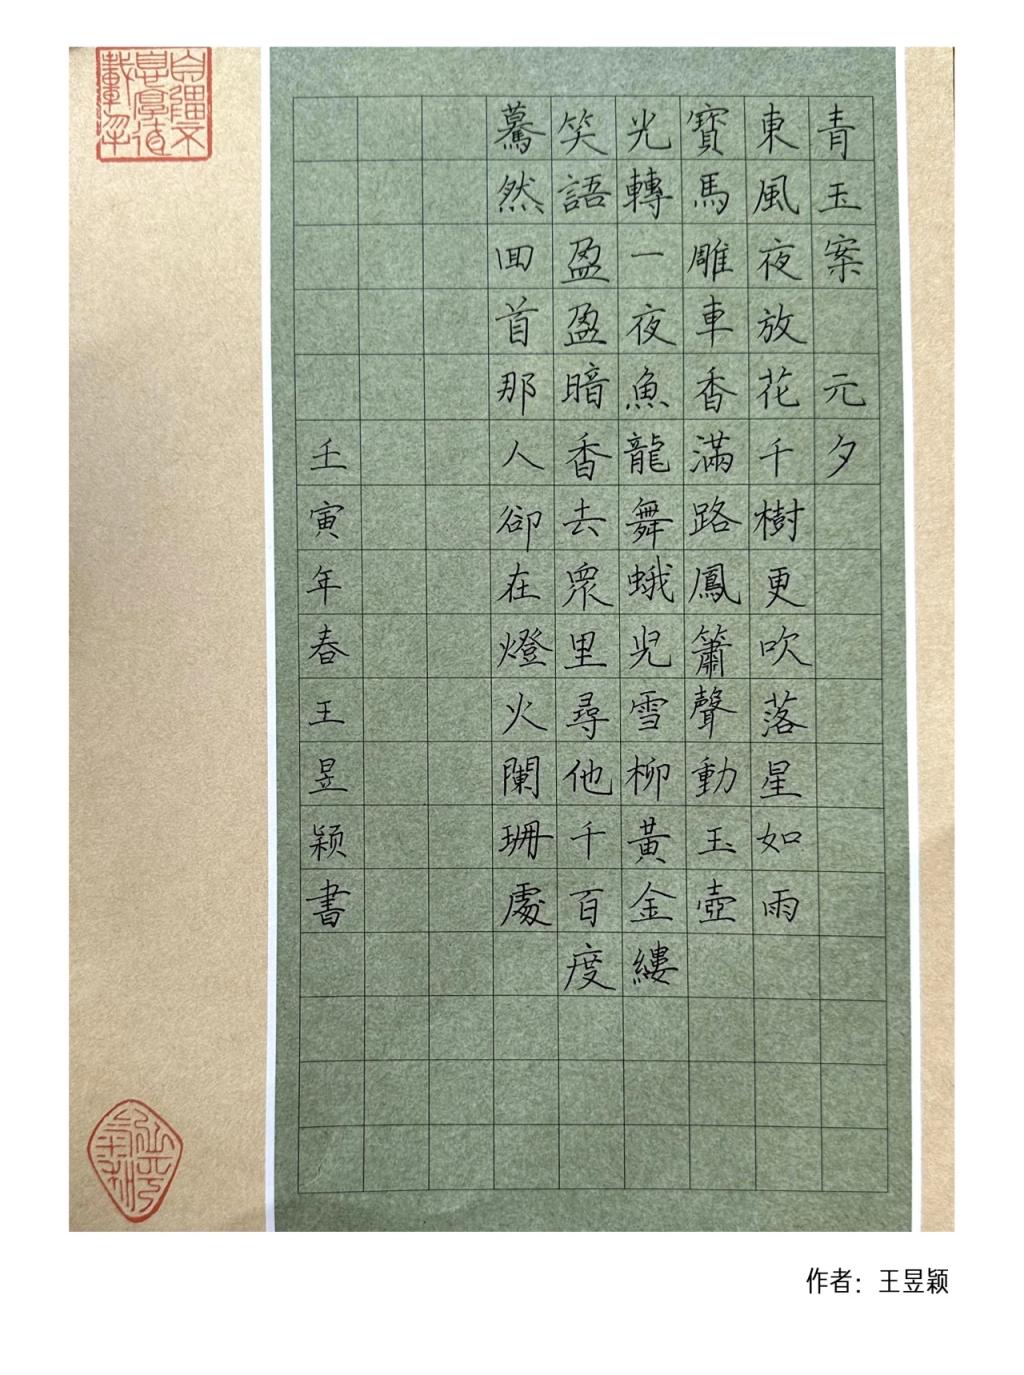 青玉案 元夕
東風夜放花千樹更吹落星如雨
寶馬雕車香滿路鳳簫聲動玉壺
光轉一夜魚龍舞蛾兒雪柳黃金縷
笑語盈盈暗香去眾里尋他千百度
驀然回首那人卻在燈火闌珊處
壬寅年春王昱颖書
自彊不息厚德載物
心平氣和
作者：王昱颖